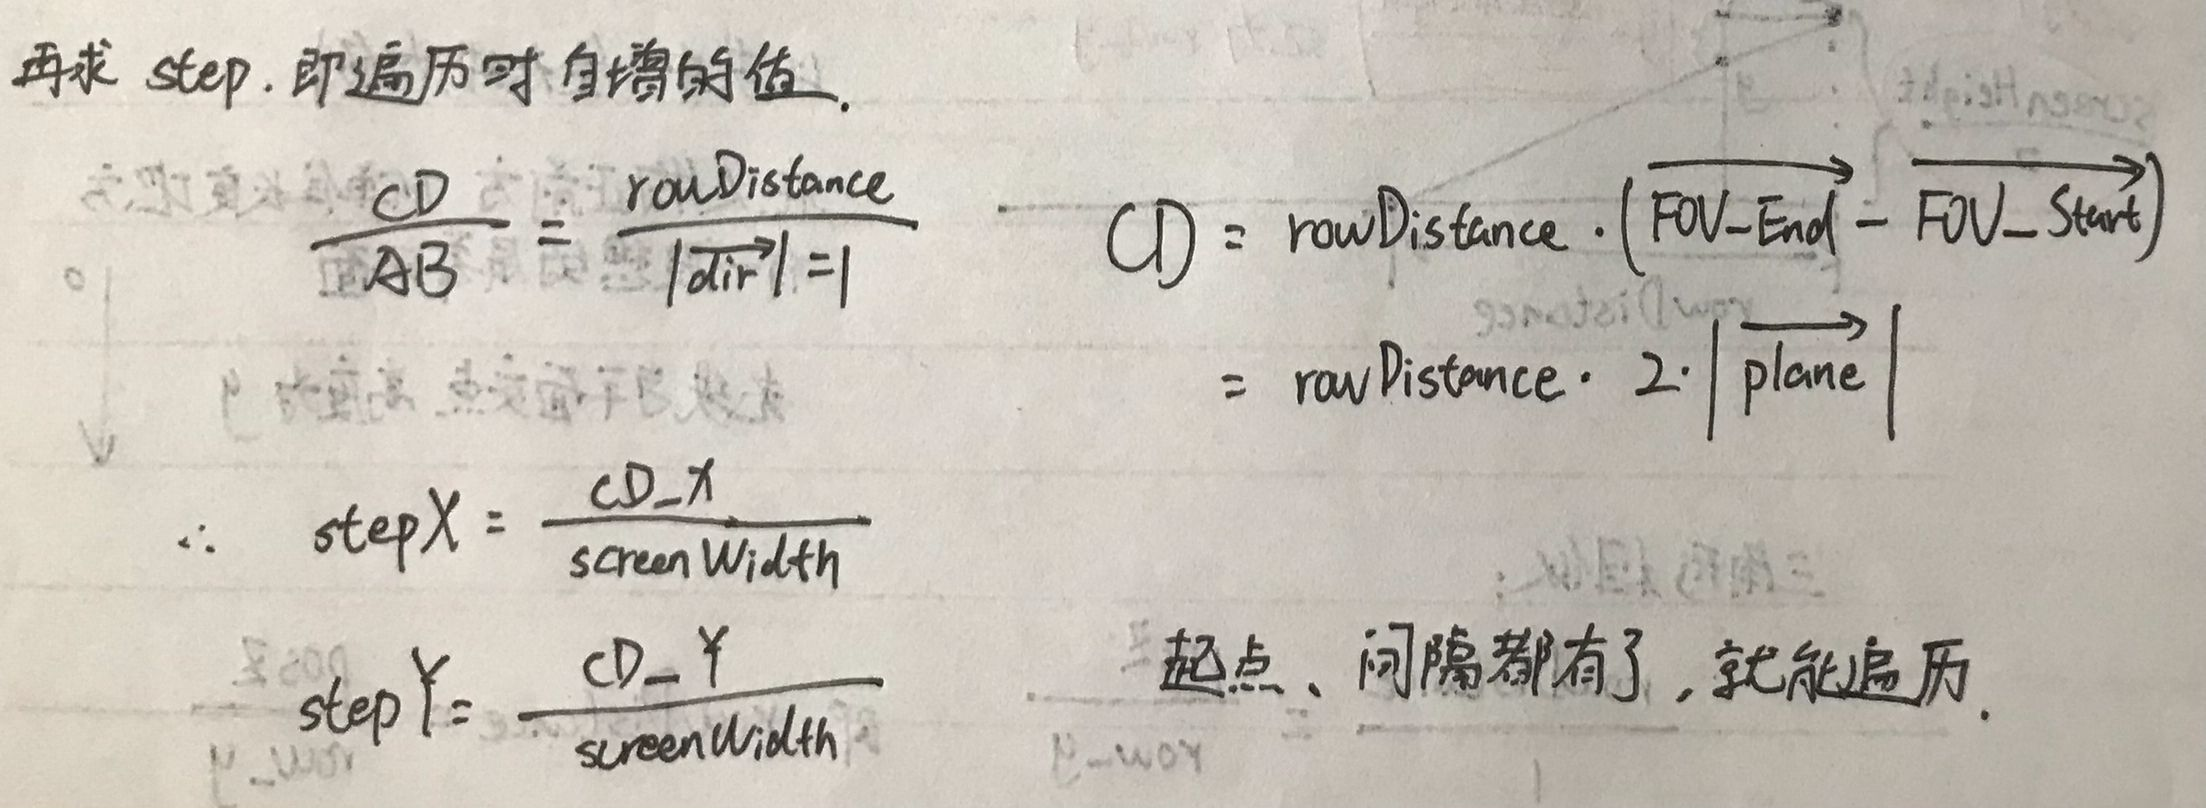 再求 step. 即遍历时自增的值.
CD/AB = rowDistance/|dir|=1
CD = rowDistance · (FOV_End - FOV_Start)
= rowDistance · 2 · |plane|
∴ stepX = CD_X/screenWidth
stepY = CD_Y/screenWidth
起点、间隔都有了, 就能遍历.